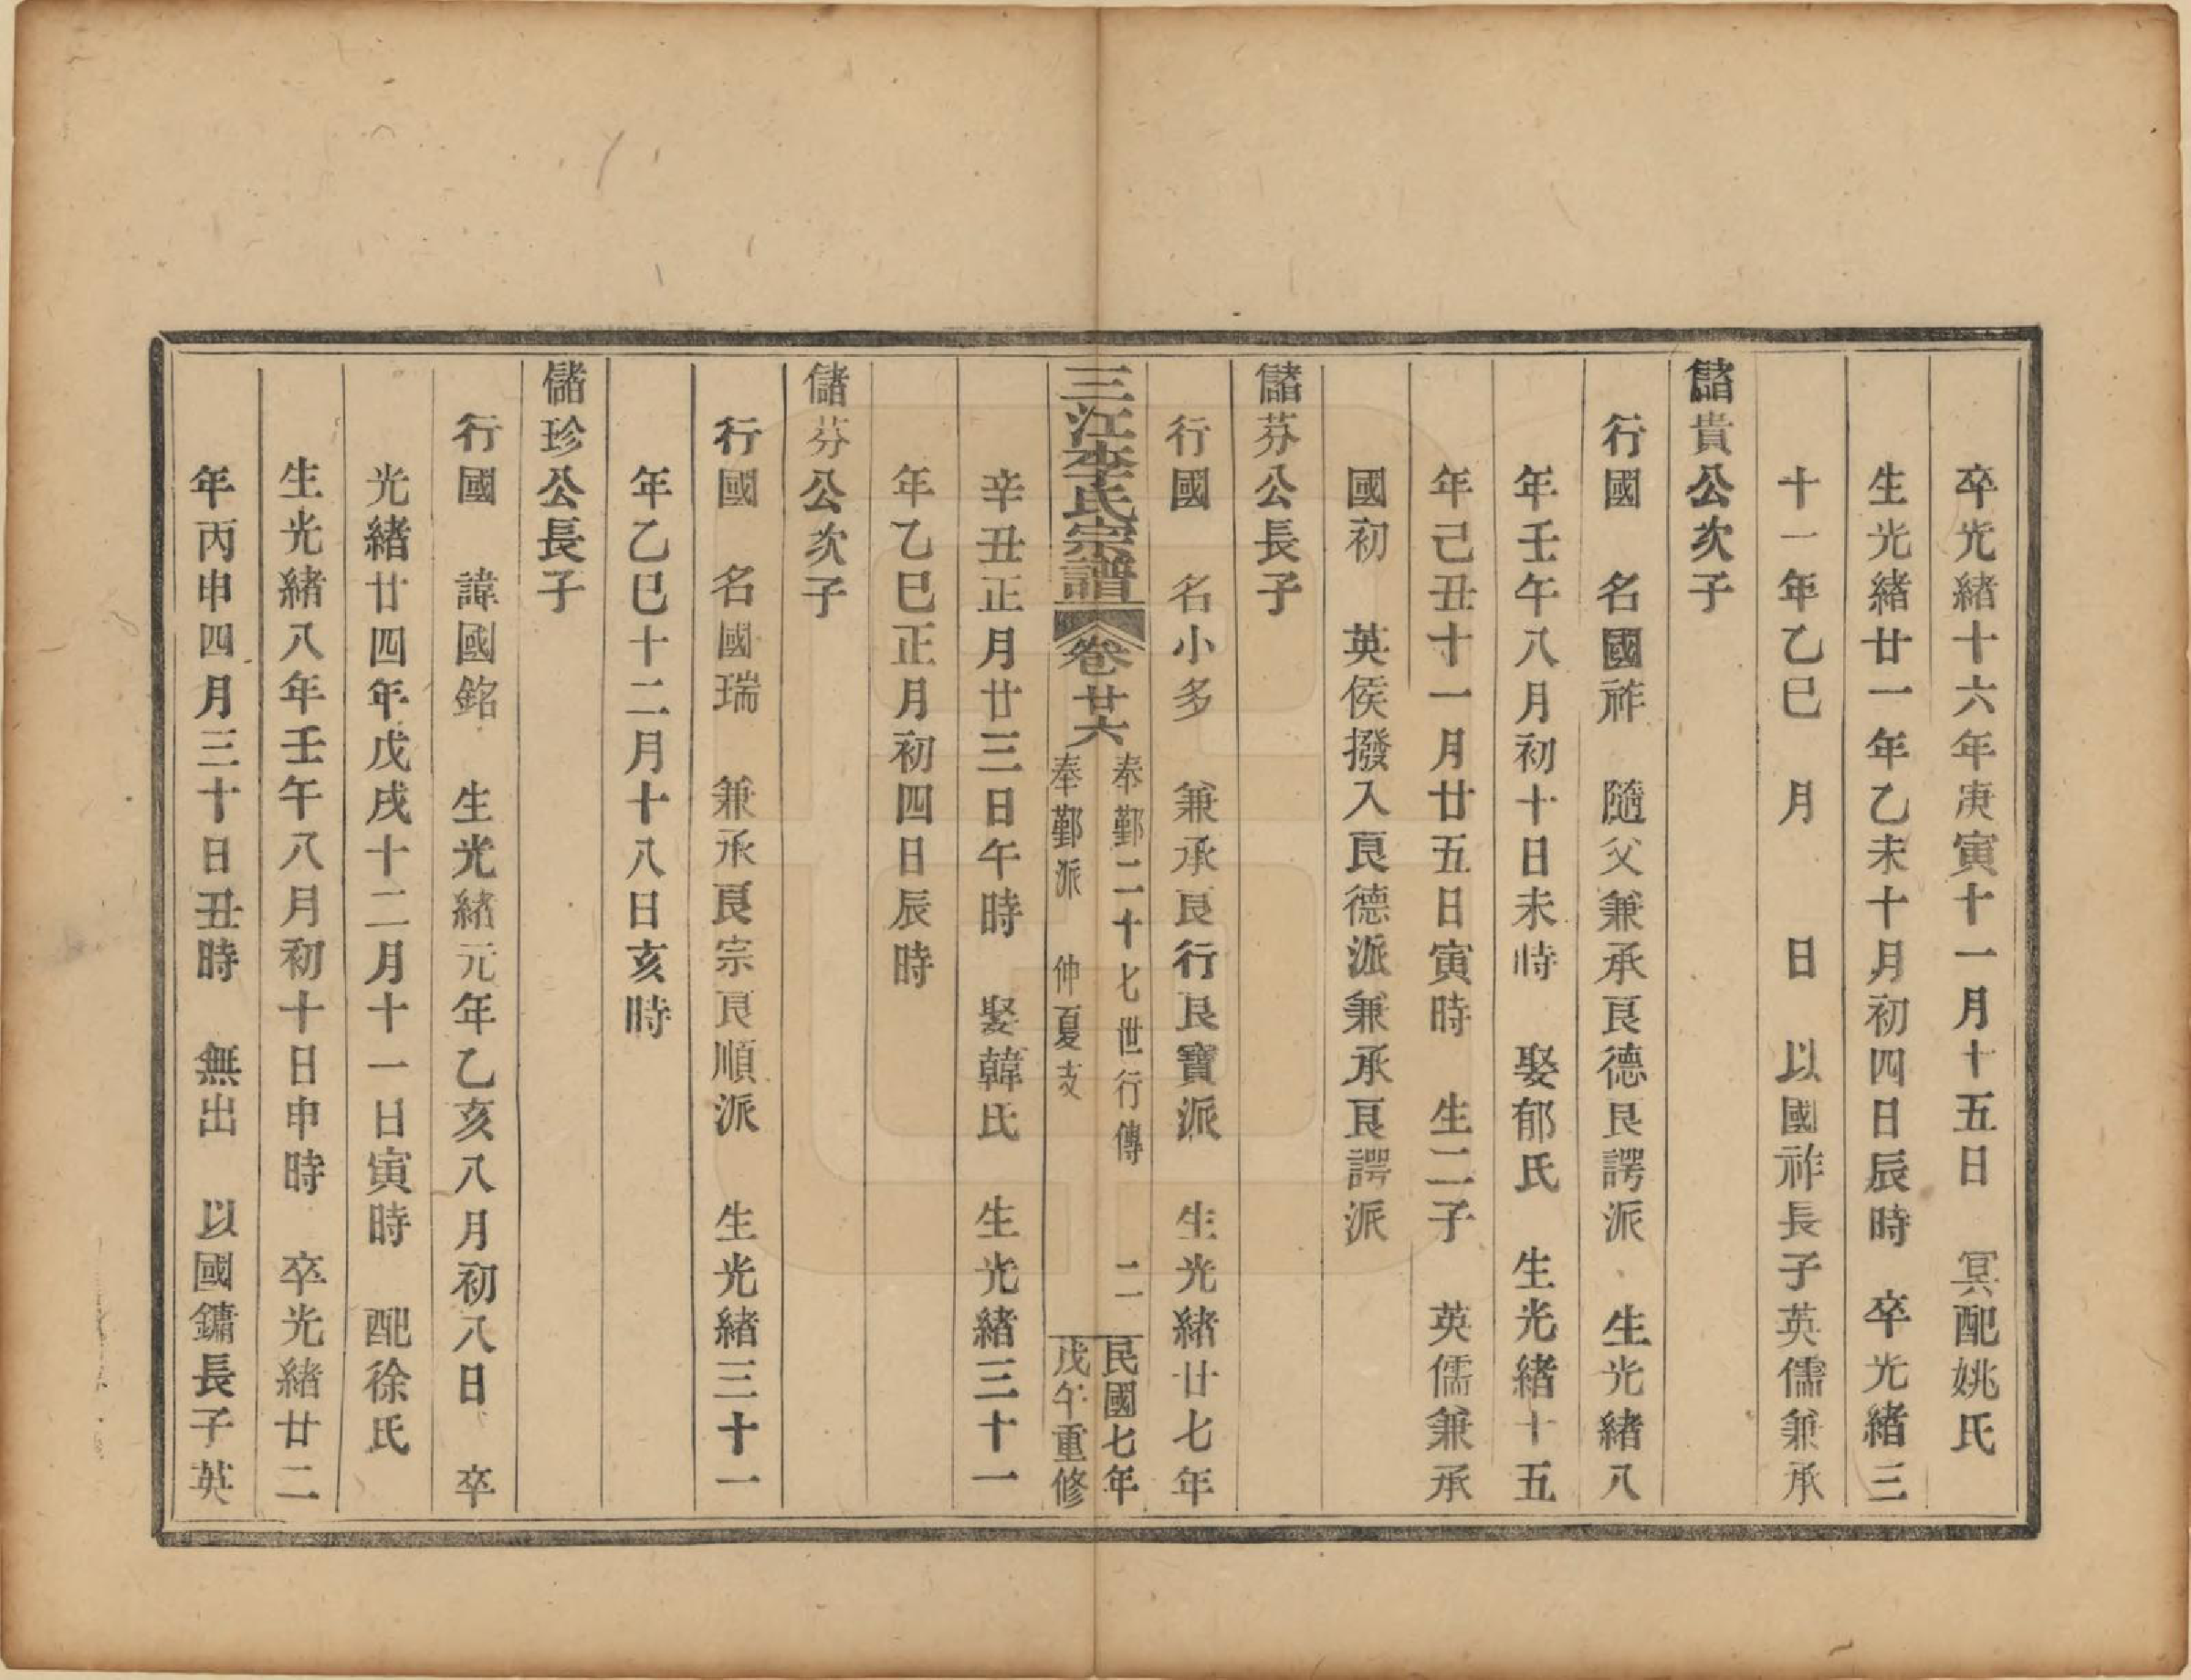 卒光緒十六年庚寅十一月十五日　冥配姚氏
生光緒廿一年乙未十月初四日辰時　卒光緒三
十一年乙巳　月　　日　以國祚長子英儒兼承
儲貴公次子
行國　名國祚　隨父兼承良德良諤派　生光緒八
年壬午八月初十日未時　娶郁氏　生光緒十五
年己丑十一月廿五日寅時　生二子　英儒兼承
國初　英侯撥入良德派兼承良諤派
儲芬公長子
行國　名小多　兼承良行良寶派　生光緒廿七年
辛丑正月廿三日午時　娶韓氏　生光緒三十一
年乙巳正月初四日辰時
三江李氏宗譜　卷廿六　奉鄞二十七世行傳　二　民國七年
奉鄞派　仲夏支　戊午重修
儲芬公次子
行國　名國瑞　兼承良宗良順派　生光緒三十一
年乙巳十二月十八日亥時
儲珍公長子
行國　諱國銘　生光緒元年乙亥八月初八日　卒
光緒廿四年戊戌十二月十一日寅時　配徐氏
生光緒八年壬午八月初十日申時　卒光緒廿二
年丙申四月三十日丑時　無出　以國鏞長子英